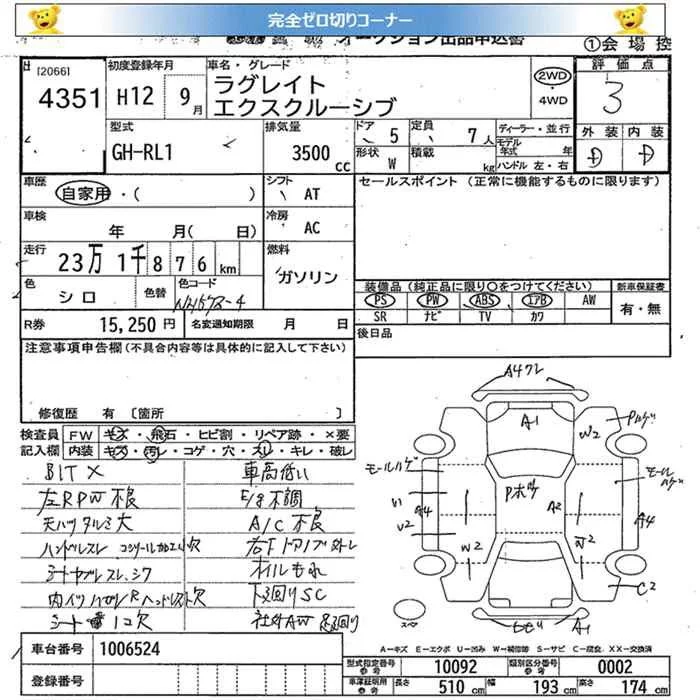 完全ゼロ切りコーナー
オークション出品申込書 ①会場控
[2066] 初度登録年月 車名・グレード 2WD・4WD 評価点
4351 H12 9月 ラグレイト エクスクルーシブ 3
型式 排気量 ドア 5 定員 7人 ディーラー・並行 外装 内装
GH-RL1 3500cc 形状 W 積載 kg モデル年式 年 ハンドル 左・右 D D
車歴 自家用・( ) シフト AT セールスポイント (正常に機能するものに限ります)
車検 年 月( 日) 冷房 AC
走行 23万1千876km 燃料 ガソリン
色 シロ 色替 色コード 装備品(純正品に限り○をつけてください) 新車保証書
PS PW ABS エアB AW 有・無
SR ナビ TV カワ
R券 15,250円 名変通知期限 月 日 後日品
注意事項申告欄(不具合内容等は具体的に記入して下さい)
修復歴 有 [箇所 ]
検査員 FW キズ・飛石・ヒビ割・リペア跡・×要
記入欄 内装 キズ・汚レ・コゲ・穴・スレ・キレ・破レ
BIT X 車高低い
左RPW不良 E/g不調
天ハリタルミ大 A/C不良
ハンドルスレ 右FドアノブハズレI
シートヤブレ、スレ、シワ オイルもれ
下廻りSC
シート 1コ欠 社外AW
A4ワレ
A1
W2
Pハゲ
モールハゲ
モールハゲ
U1
U2
A4
Pボケ
A2
A4
W2
C2
A1
スペア
A-キズ E-エクボ U-凹み W-補修跡 S-サビ C-腐食 XX-交換済
車台番号 1006524 型式指定番号 参考 10092 類別区分番号 参考 0002
登録番号 車庫証明用 参考 長さ 510cm 幅 193cm 高さ 174cm